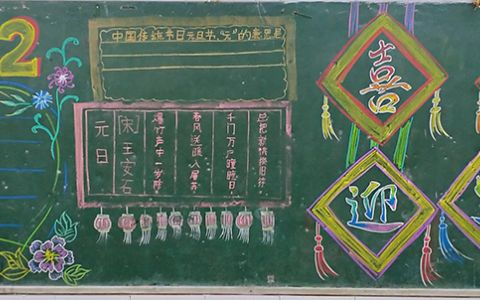 2
中国传统节日元旦节,“元”的意思是
元日
[宋]王安石
爆竹声中一岁除
春风送暖入屠苏
千门万户曈曈日
总把新桃换旧符
喜
迎